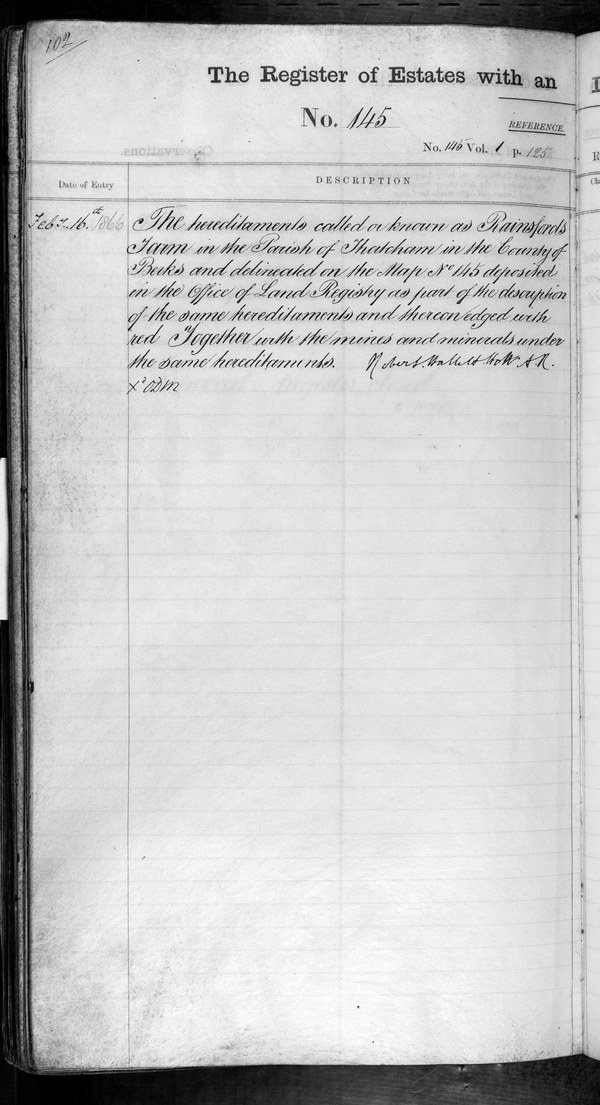 102
The Register of Estates with an
No. 145
REFERENCE.
No. 145 Vol. 1 p. 125
Date of Entry
DESCRIPTION
Feby. 16th 1866 The hereditaments called or known as Rainsfords
Farm in the Parish of Thatcham in the County of
Berks and delineated on the Map No 145 deposited
in the Office of Land Registry as part of the description
of the same hereditaments and thereon edged with
red Together with the mines and minerals under
the same hereditaments. Robert Hallett Holt A.R.